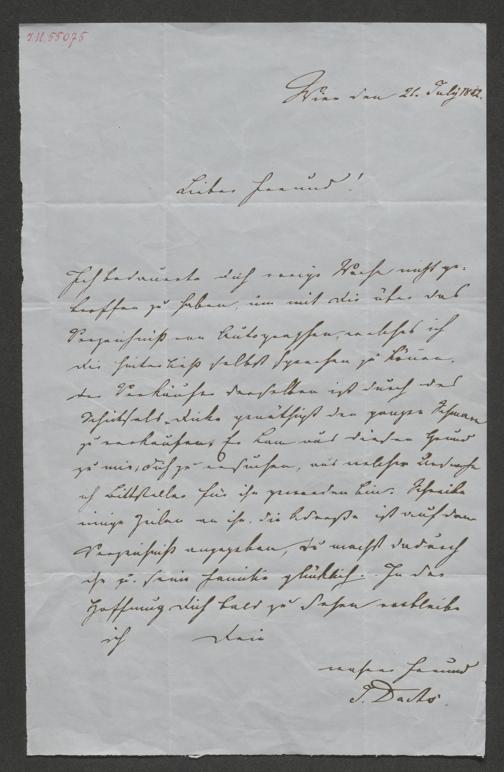 J.N. 55075
Wien den 21. July 1882.
Lieber Freund!
Ich bedauerte dich vorige Woche nicht ge-
troffen zu haben, um mit dir über das
Verzeichniß von Autographen, welches ich
dir hinterließ selbst sprechen zu können.
der Verkäufer derselben ist durch des
Schicksals Tücke genöthigt den ganzen
zu verkaufen. Er kam aus diesem Grund
zu mir, dich zu ersuchen, aus welcher Ursache
ich Bittsteller für ihn geworden bin. Schreibe
einige Zeilen an ihn. die Adresse ist auf dem
Verzeichniß angegeben, du machst dadurch
ihn u. seine Familie glücklich. In der
Hoffnung dich bald zu sehen verbleibe
ich Dein
wahrer Freund